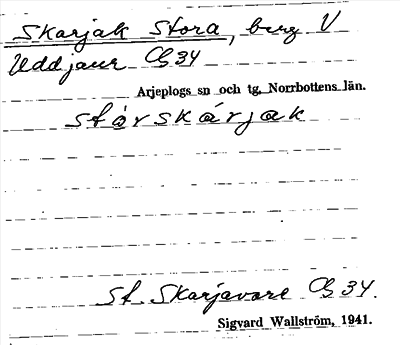 Skarjak Stora, berg V
Uddjaur Cg 34
Arjeplogs sn och tg, Norrbottens län.
stárskárjak
St. Skarjavare Cg 34.
Sigvard Wallström, 1941.